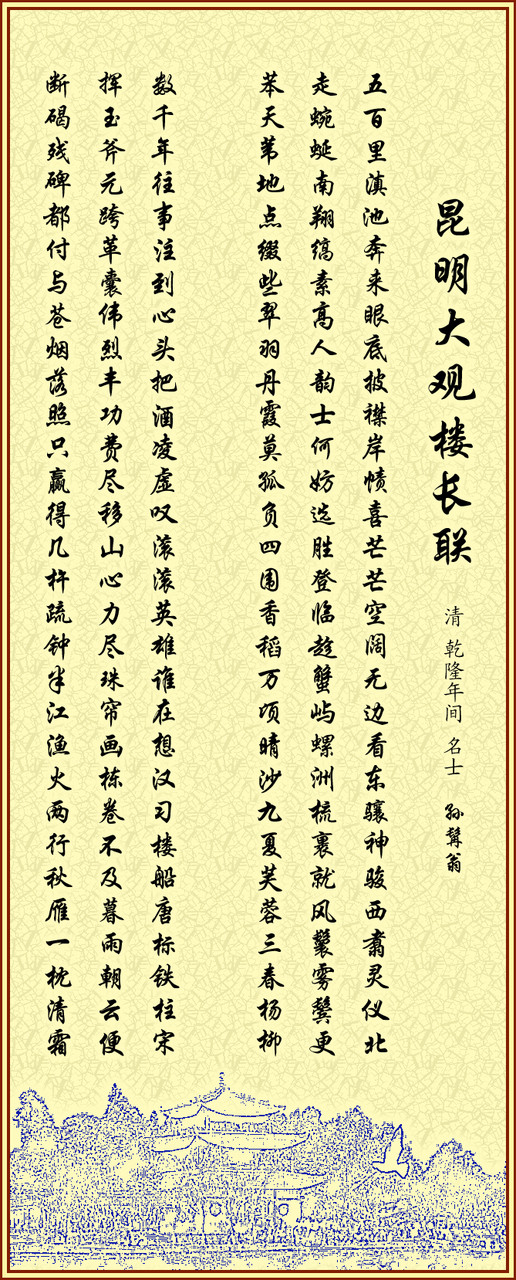 昆明大观楼长联
清 乾隆年间 名士 孙髯翁
五百里滇池奔来眼底披襟岸帻喜芒芒空阔无边看东骧神骏西翥灵仪北
走蜿蜒南翔缟素高人韵士何妨选胜登临趁蟹屿螺洲梳裹就风鬟雾鬓更
苹天苇地点缀些翠羽丹霞莫孤负四围香稻万顷晴沙九夏芙蓉三春杨柳
数千年往事注到心头把酒凌虚叹滚滚英雄谁在想汉习楼船唐标铁柱宋
挥玉斧元跨革囊伟烈丰功费尽移山心力尽珠帘画栋卷不及暮雨朝云便
断碣残碑都付与苍烟落照只赢得几杵疏钟半江渔火两行秋雁一枕清霜